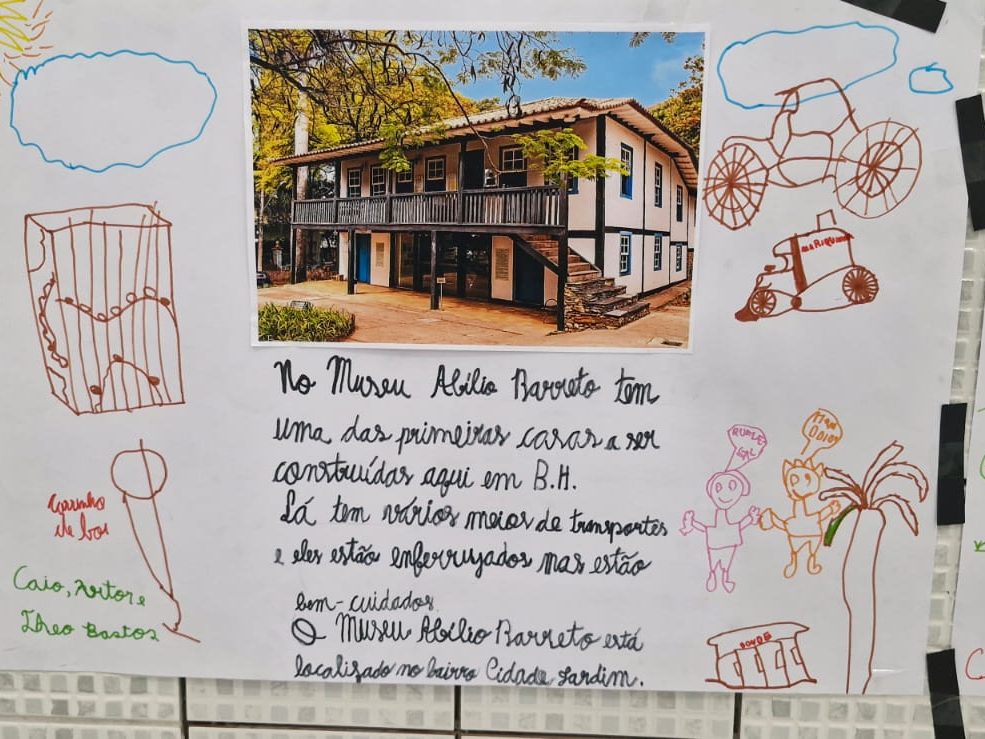 No Museu Abílio Barreto tem
uma das primeiras casas a ser
construídas aqui em B.H.
Lá tem vários meios de transportes
e eles estão enferrujados mas estão
bem-cuidados.
O Museu Abílio Barreto está
localizado no bairro Cidade Jardim.
Carrinho
de boi
Caio,
e
Theo Bastos